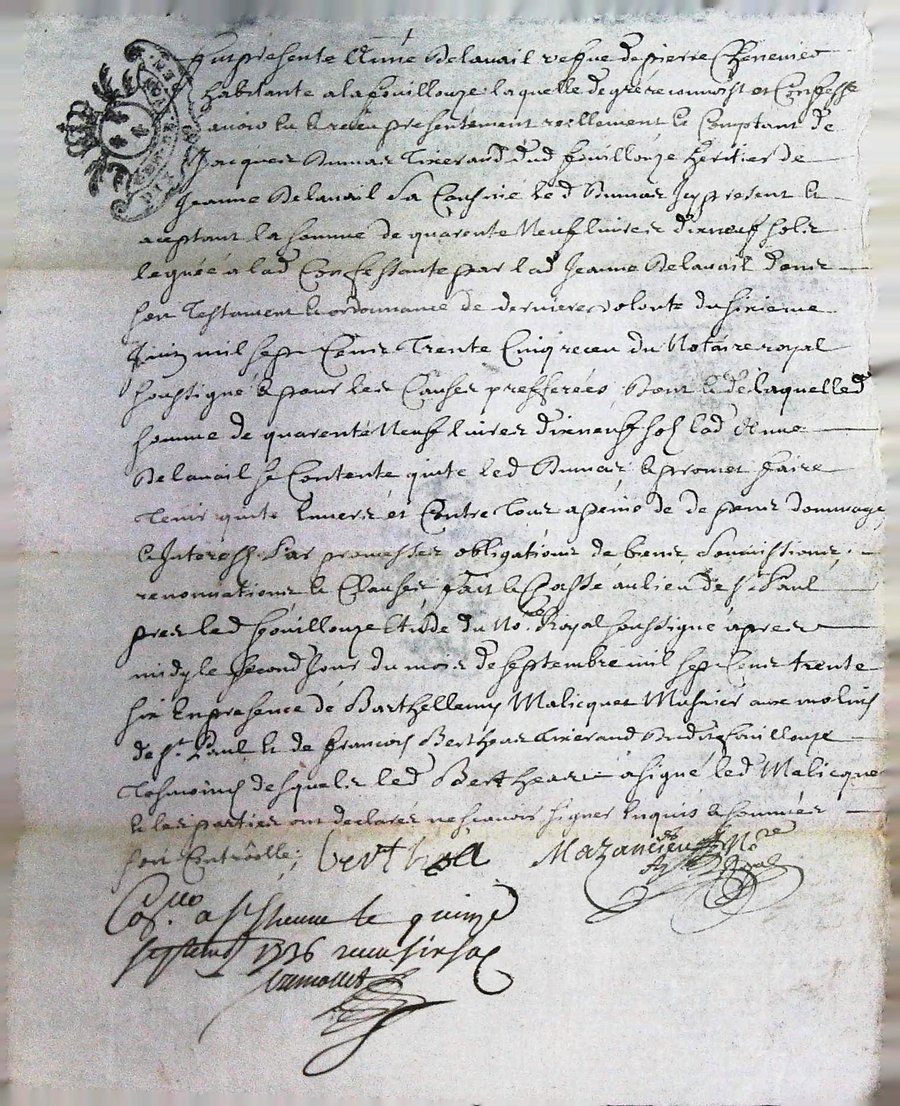 fut presente Anne Delavail vefve de pierre Chenevier
habitante a la fouillouze laquelle de gré reconnoist et Confesse
avoir eu & receu presentement reellement & Comptant de
Jacques Dumas tixerand dud fouillouze heritier de
Jeanne Delavail sa Cousine led Dumas Icy present &
aceptant la somme de quarente Neuf livres dixneuf sols
leguée a lad Confessante par lad Jeanne Delavail dans
son Testament & ordonnance de derniere volonte du sixieme
Juin mil sept Cens Trente Cinq receu du Notaire royal
soussigné & pour les Causes prefferées, de laquelle d
somme de quarente Neuf livres dixneuf sols lad Anne
Delavail se Contente quite led Dumas, & promet faire
tenir quite Envers et Contre tous a peine de de pens dommages
& Interests. Par promesses obligations de biens soumissions,
renonciations & Clauses fait & Passé au lieu de St Paul
pres led fouillouze Etude du No.re Royal soussigné apres
midy le second Jour du mois de septembre mil sept Cens trente
six En presence de Barthellemy Malicquet Musnier aux molins
de St. Paul & de francois Bertheas tixerand dud fouillouze
tesmoins desquels led Bertheas a signé led Malicquet
& les parties ont declarés ne scavoir signer Enquis & sommés
soit Controlle; berthea Mazancieu No.re
Royal
Con.lle a St Etienne le quinze
septembre 1736 receu six sols